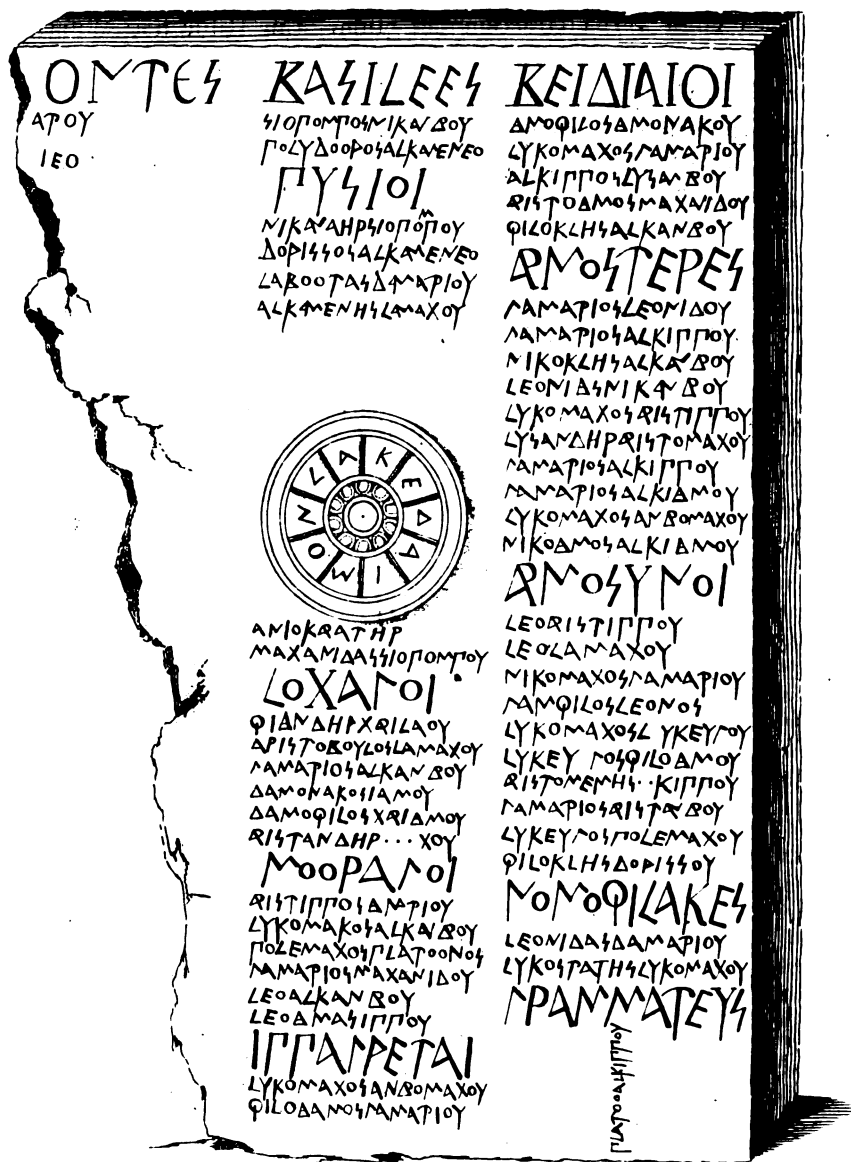 ΟΝΤΕΣ
ΑΡΟΥ
ΙΕΟ
ΒΑΣΙΛΕΕΣ
ΣΙΟΠΟΜΠΟΣΝΙΚΑΝΒΟΥ
ΠΟΛΥΔΟΟΡΟΣΑΛΚΑΜΕΝΕΟ
ΠΥΣΙΟΙ
ΝΙΚΑΝΔΗΡΣΙΟΠΟΜΠΟΥ
ΔΟΡΙΣΣΟΣΑΛΚΑΜΕΝΕΟ
ΛΑΒΟΟΤΑΣΔΑΜΑΡΙΟΥ
ΑΛΚΑΜΕΝΗΣΛΑΜΑΧΟΥ
ΛΑΚΕΔΑΙΜΟΝ
ΑΝΙΟΚΑΡΑΤΗΡ
ΜΑΧΑΝΙΔΑΣΣΙΟΠΟΜΠΟΥ
ΛΟΧΑΓΟΙ
ΦΙΔΑΝΔΗΡΧΑΡΙΛΑΟΥ
ΑΡΙΣΤΟΒΟΥΛΟΣΛΑΜΑΧΟΥ
ΓΑΜΑΡΙΟΣΑΛΚΑΝΒΟΥ
ΔΑΜΟΝΑΚΟΣΙΑΜΟΥ
ΔΑΜΟΦΙΛΟΣΧΑΡΙΔΑΜΟΥ
ΑΡΙΣΤΑΝΔΗΡ···ΧΟΥ
ΜΟΟΡΑΓΟΙ
ΑΡΙΣΤΙΠΠΟΣΔΑΜΑΡΙΟΥ
ΛΥΚΟΜΑΚΟΣΑΛΚΑΝΒΟΥ
ΠΟΛΕΜΑΧΟΣΠΛΑΤΟΟΝΟΣ
ΓΑΜΑΡΙΟΣΜΑΧΑΝΙΔΟΥ
ΛΕΟΑΛΚΑΝΒΟΥ
ΛΕΟΔΑΜΑΣΙΠΠΟΥ
ΙΠΠΑΓΡΕΤΑΙ
ΛΥΚΟΜΑΧΟΣΑΝΒΟΜΑΧΟΥ
ΦΙΛΟΔΑΜΟΣΓΑΜΑΡΙΟΥ
ΒΕΙΔΙΑΙΟΙ
ΔΑΜΟΦΙΛΟΣΔΑΜΟΝΑΚΟΥ
ΛΥΚΟΜΑΧΟΣΓΑΜΑΡΙΟΥ
ΑΛΚΙΠΠΟΣΛΥΣΑΝΒΟΥ
ΑΡΙΣΤΟΔΑΜΟΣΜΑΧΑΝΙΔΟΥ
ΦΙΛΟΚΛΗΣΑΛΚΑΝΒΟΥ
ΑΡΜΟΣΤΕΡΕΣ
ΓΑΜΑΡΙΟΣΛΕΟΝΙΔΟΥ
ΓΑΜΑΡΙΟΣΑΛΚΙΠΠΟΥ
ΝΙΚΟΚΛΗΣΑΛΚΑΝΒΟΥ
ΛΕΟΝΙΔΑΣΝΙΚΑΝΒΟΥ
ΛΥΚΟΜΑΧΟΣΑΡΙΣΤΙΠΠΟΥ
ΛΥΣΑΝΔΗΡΑΡΙΣΤΟΜΑΧΟΥ
ΓΑΜΑΡΙΟΣΑΛΚΙΠΠΟΥ
ΓΑΜΑΡΙΟΣΑΛΚΙΔΑΜΟΥ
ΛΥΚΟΜΑΧΟΣΑΝΒΟΜΑΧΟΥ
ΝΙΚΟΔΑΜΟΣΑΛΚΙΔΑΜΟΥ
ΑΡΜΟΣΥΝΟΙ
ΛΕΟΑΡΙΣΤΙΠΠΟΥ
ΛΕΟΛΑΜΑΧΟΥ
ΝΙΚΟΜΑΧΟΣΓΑΜΑΡΙΟΥ
ΓΑΜΦΙΛΟΣΛΕΟΝΟΣ
ΛΥΚΟΜΑΧΟΣΛΥΚΕΥΓΟΥ
ΛΥΚΕΥΓΟΣΦΙΛΟΔΑΜΟΥ
ΑΡΙΣΤΟΜΕΝΗΣ··ΚΙΠΠΟΥ
ΓΑΜΑΡΙΟΣΑΡΙΣΤΑΝΒΟΥ
ΛΥΚΕΥΓΟΣΠΟΛΕΜΑΧΟΥ
ΦΙΛΟΚΛΗΣΔΟΡΙΣΣΟΥ
ΝΟΜΟΦΙΛΑΚΕΣ
ΛΕΟΝΙΔΑΣΔΑΜΑΡΙΟΥ
ΛΥΚΟΣΡΑΤΗΣΛΥΚΟΜΑΧΟΥ
ΓΡΑΜΜΑΤΕΥΣ